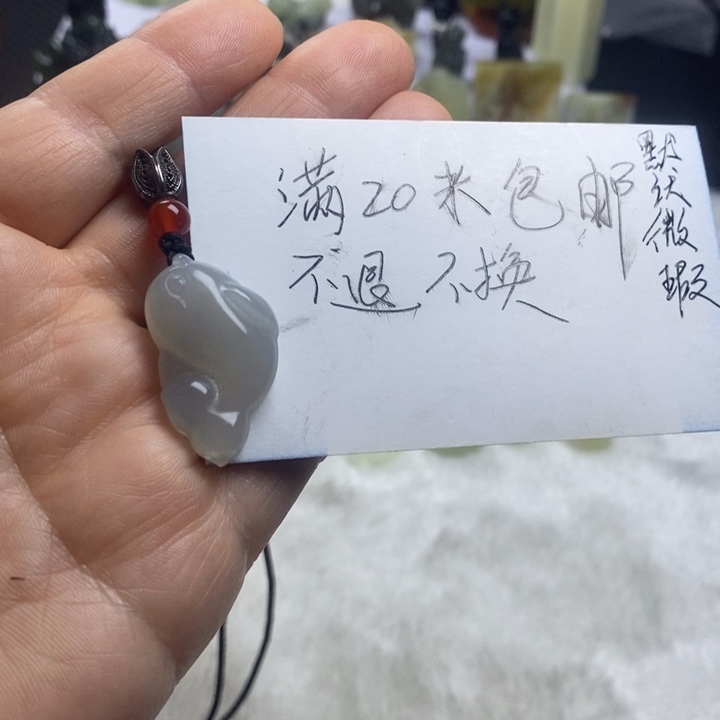 满20米包邮
不退不换
默认微瑕